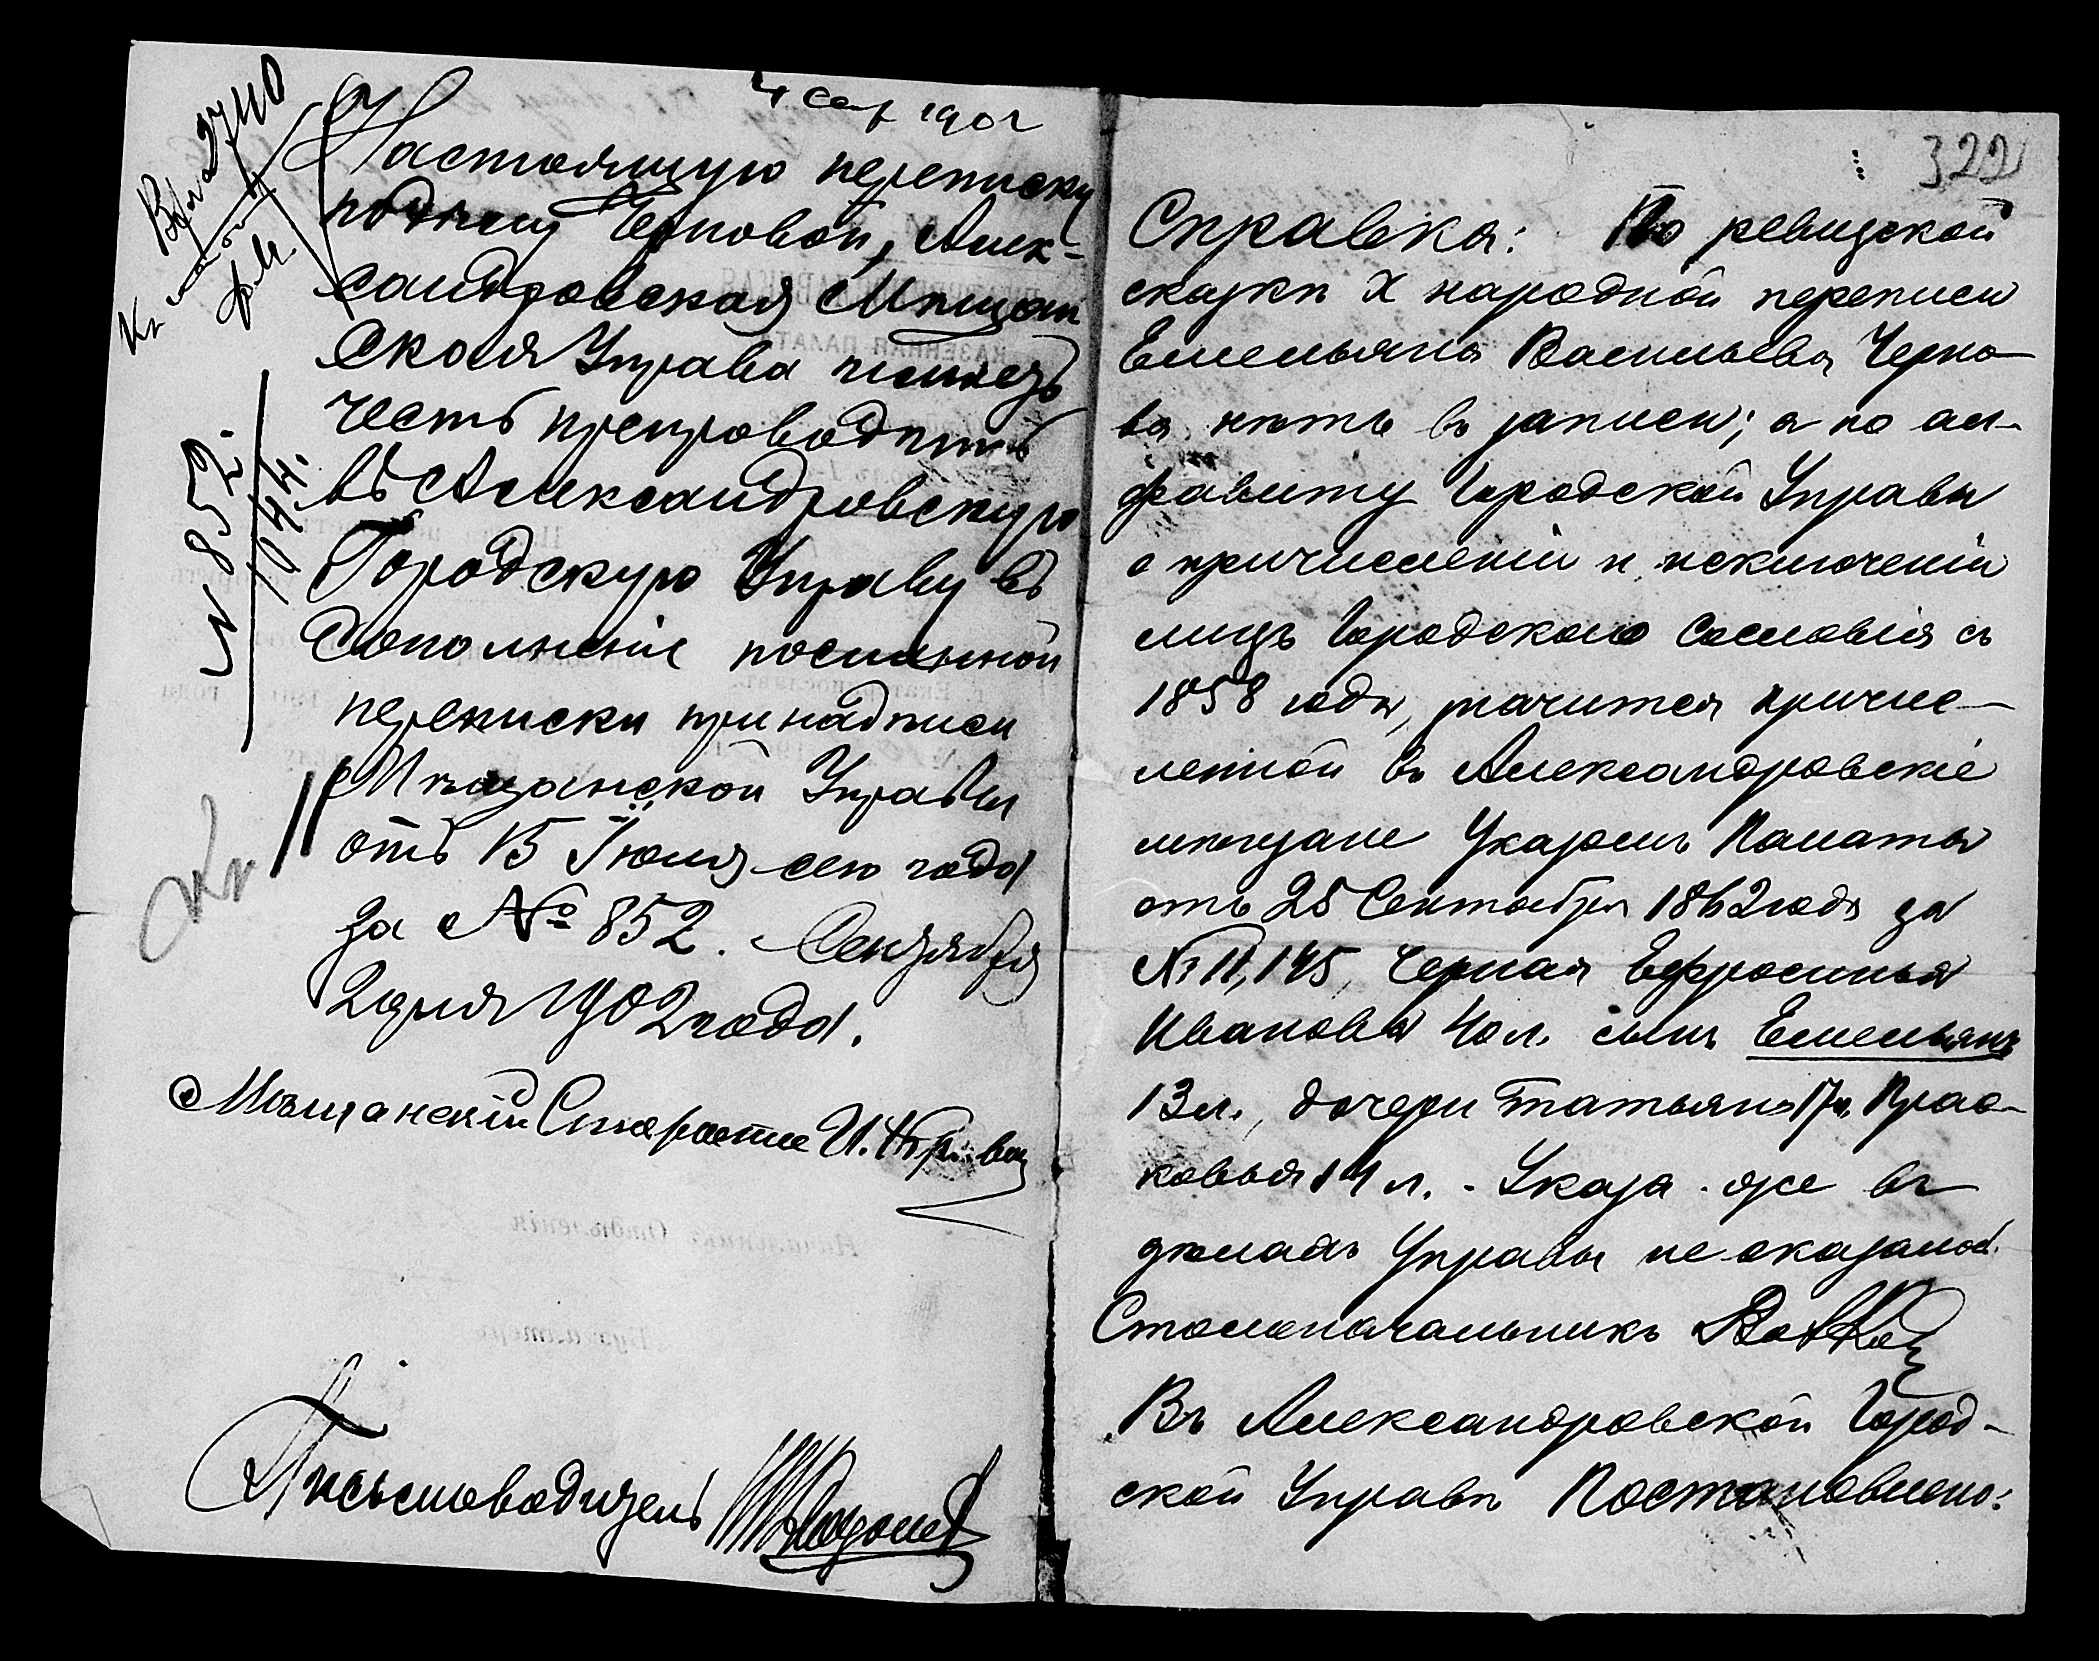 4 Сен 1902
Настоящую переписку
по дѣлу Черновой, Алек-
сандровская Мѣщан
ская Управа имѣетъ
честь препроводить
въ Александровскую
Городскую Управу въ
дополненіе посланной
переписки при надписи
Мѣщанской Управы
отъ 15 Іюля сего года
за № 852. Сентября
2 дня 1902 года.
Мѣщанскій Староста И.
Письмоводитель
Вх 2740
№ 852.
1044.
322
Справка: По ревизской
сказкѣ X народной переписи
Емельяна Васильева Черно-
ва нѣтъ въ записи; а по ал-
фавиту Городской Управы
о причисленіи и исключеніи
лицъ Городского Сословія съ
1858 года, значится причис-
ленной въ Александровскіе
мѣщане Указомъ Палаты
отъ 25 Сентября 1862 года за
№ 11,145, Черная Ефросинья
Иванова 40 л. сынъ Емельянъ
13 л., дочери Татьяна 17 л. Прас-
ковья 14 л. - Указа же въ
дѣлахъ Управы не оказалось.
Столоначальникъ
Въ Александровской Город-
ской Управѣ Постановлено: